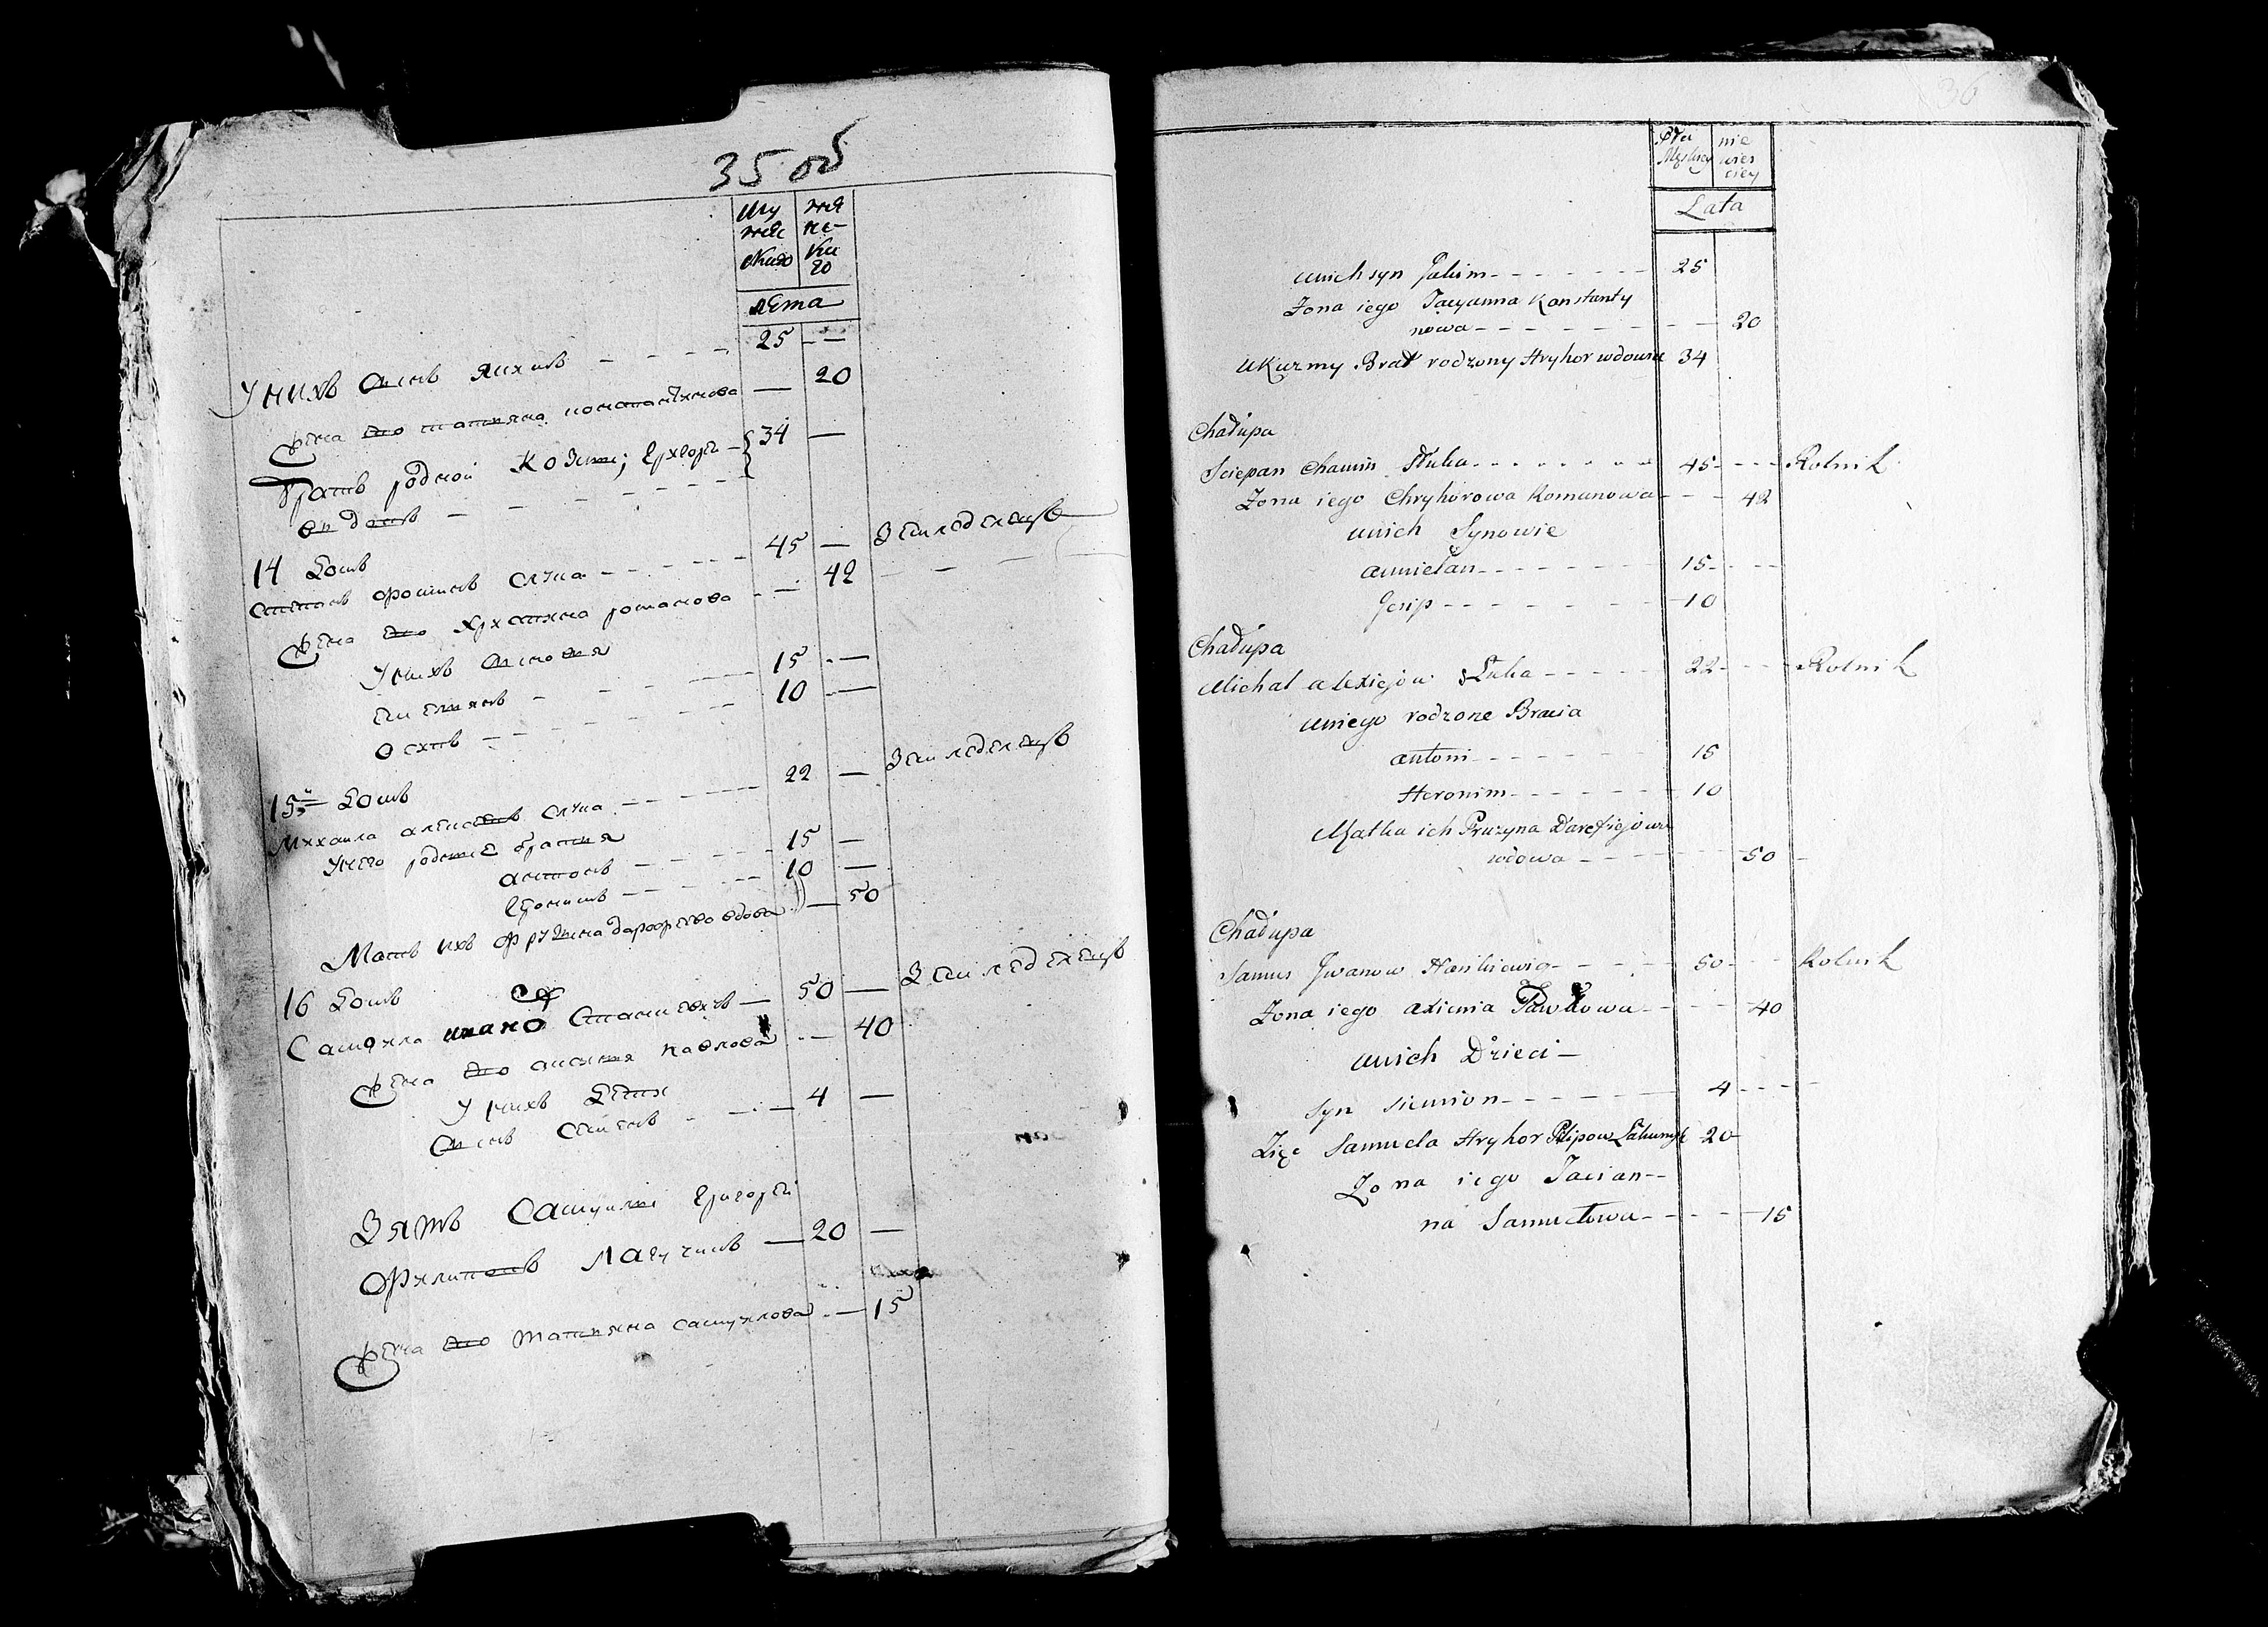 35 об
Му
жес
скаго
же
нс-
ка
го
лета
Унихъ сынъ Якимъ - - - - 25 - -
жена его татияна константинова — 20
братъ родной Козмы; Григорей - 34 —
вдовъ - - - - - -
14 Домъ
степанъ фоминъ слука - - - - - 45 — Земледелецъ
жена его христина романова - - — 42 - - -
Унихъ сыновя
емелянъ - - - - - 15 - —
осипъ - - - - - - 10 - —
15й Домъ
Михаила алексеевъ слука - - - - - 22 — Земледелецъ
Унего родные братия
антонъ - - - - - 15 —
Еронимъ - - - - - 10 —
Матъ ихъ Фрузына дарофеева вдова — 50
16 Домъ
Самойла ивано — 50 — Земледелецъ
жена его аксиня павлова - — 40
Унихъ Дети
сынъ семенъ - - - — 4 —
Зять Самуилы Григорей
Филиповъ Лагучикъ — 20 —
жена его татияна самуилова - — 15
36
Płci
Męskiey
nie
wies
ciey
Lata
unich syn Jakim - - - - - - - 25
Żona iego Taciyanna Konstanty
nowa - - - - - - - - 20
u Kuzmy Brat rodzony Hryhor wdowiec 34
Chałupa
Sciepan Chamin Słuka - - - - - - - 45 - - - Rolnik
Żona iego Chryhorowa Romanowa - - - 42
unich Synowie
aumielan - - - - - - - - 15 - - - -
Josip - - - - - - - - 10
Chałupa
Michał alexiejow Słuka - - - - - 22 - - - Rolnik
uniego rodzone Bracia
antoni - - - - - - 15
Heronim - - - - - - - 10
Matka ich Pruzyna Darefiejowa
wdowa - - - - - - - 50 -
Chałupa
Samus Jwanow - - - - 50 - - - Rolnik
Żona iego axienia Pawłowa - - - - 40
unich Dzieci -
syn siemion - - - - - - - 4 - - - -
Zięc Samuela Hryhor Pilipow 20 -
Żona iego Tacian - -
na Samuełowa - - - - - 15